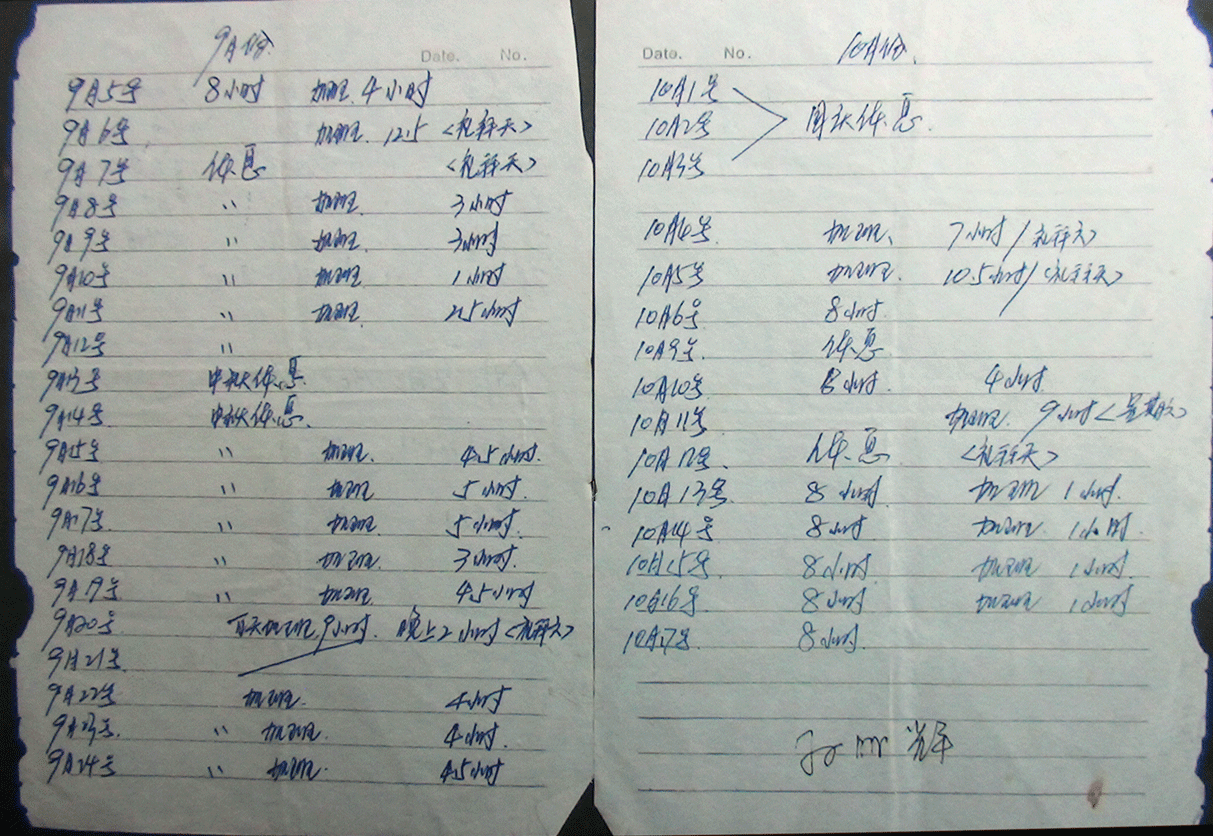 9月份
Date. No.
9月5号 8小时 加班 4小时
9月6号 加班 12.5 <礼拜天>
9月7号 休息 <礼拜天>
9月8号 〃 加班 3小时
9月9号 〃 加班 3小时
9月10号 〃 加班 1小时
9月11号 〃 加班 2.5小时
9月12号 〃
9月13号 中秋休息
9月14号 中秋休息
9月15号 〃 加班 4.5小时
9月16号 〃 加班 5小时
9月17号 〃 加班 5小时
9月18号 〃 加班 3小时
9月19号 〃 加班 4.5小时
9月20号 百天加班 9小时 晚上2小时<礼拜六>
9月21号
9月22号 加班 4小时
9月23号 〃 加班 4小时
9月24号 〃 加班 4.5小时
Date. No. 10月份
10月1号
10月2号 国庆休息
10月3号
10月4号 加班 7小时/礼拜六
10月5号 加班 10.5小时/<礼拜天>
10月6号 8小时
10月9号 休息
10月10号 8小时 4小时
10月11号 加班 9小时<星期六>
10月12号 休息 <礼拜天>
10月13号 8小时 加班 1小时
10月14号 8小时 加班 1小时
10月15号 8小时 加班 1小时
10月16号 8小时 加班 1小时
10月17号 8小时
辉